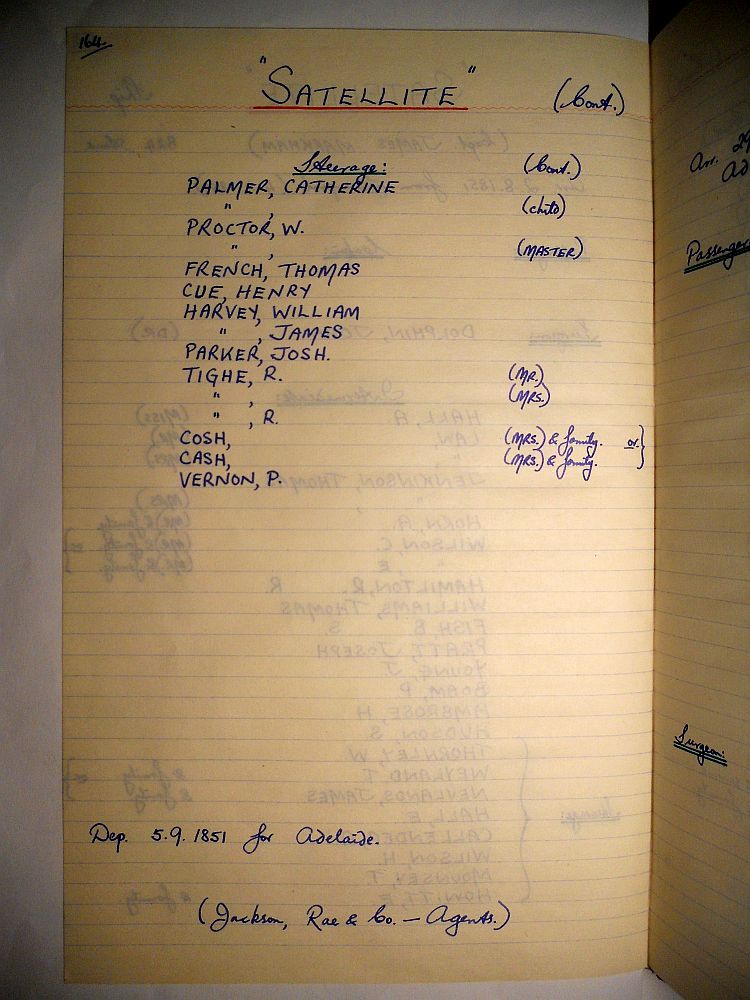 164
"SATELLITE" (Cont.)
Steerage: (Cont.)
PALMER, CATHERINE
" , (child)
PROCTOR, W.
" , (MASTER)
FRENCH, THOMAS
CUE, HENRY
HARVEY, WILLIAM
" , JAMES
PARKER, JOSH.
TIGHE, R. (MR.)
" , (MRS.)
" , R.
COSH, (MRS.) & family. or }
CASH, (MRS.) & family.
VERNON, P.
Dep. 5.9.1851 for Adelaide.
(Jackson, Rae & Co. — Agents.)
Arr. 29
Ad
Passenger
Surgeon: